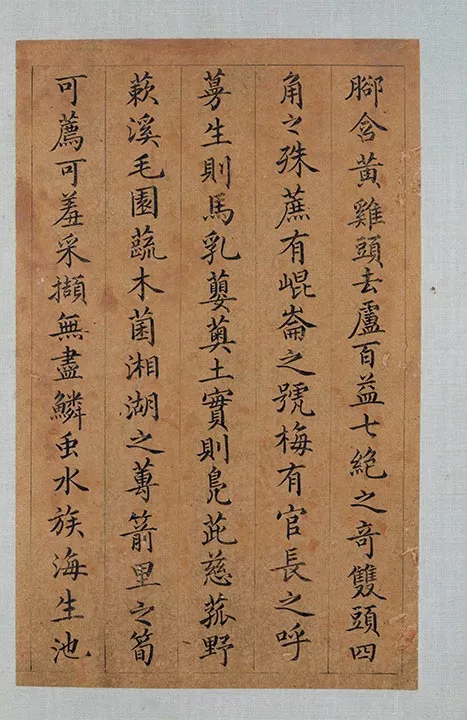 腳含黃雞頭去盧百益七絕之奇雙頭四
角之殊蔗有崐崙之號梅有官長之呼
蔓生則馬乳蘡薁土實則鳧茈慈菰野
蔌溪毛園蔬木菌湘湖之蓴箭里之筍
可薦可羞采擷無盡鱗虫水族海生池